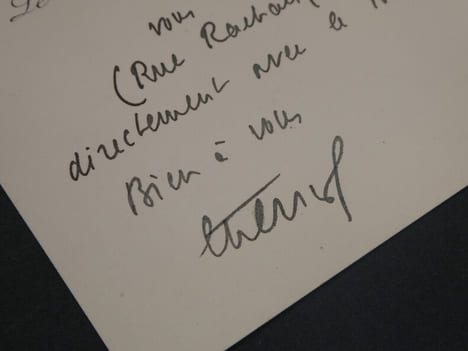 vous
(Rue
directement avec le
Bien à vous